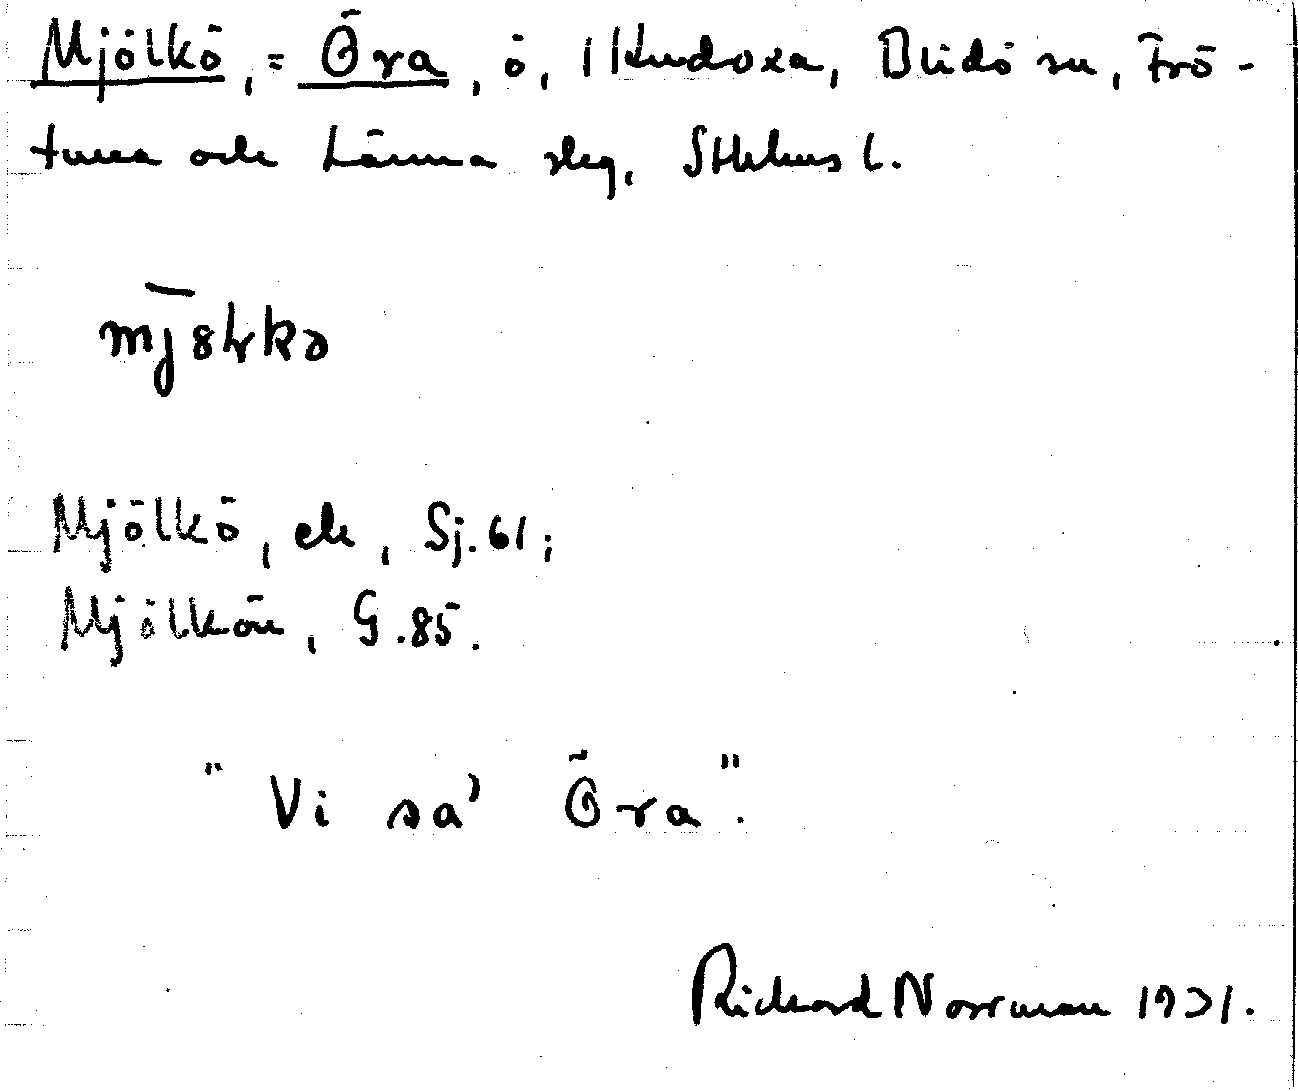 Mjölkö, = Öra, ö, 1 Kudoxa, Blidö sn, Frö-
tuna och Länna slg, Sthlms l.
Mjölkö, ek, Sj. 61;
Mjölkön, G. 85.
"Vi sa' Öra".
Richard Norrman 1931.